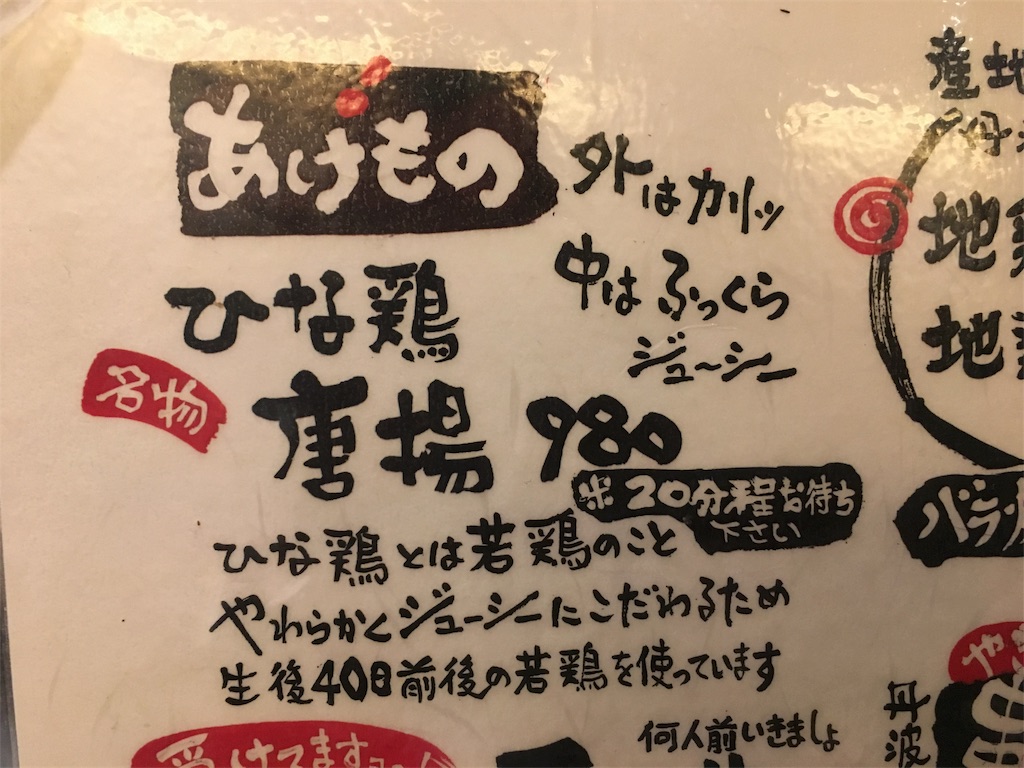 あげもの
外はカリッ
中はふっくら
ジューシー
ひな鶏
名物
唐揚 980
※20分程お待ち
下さい
ひな鶏とは若鶏のこと
やわらかくジューシーにこだわるため
生後40日前後の若鶏を使っています
何人前いきましょ
産地
丹
地
地
バラ
や
丹波